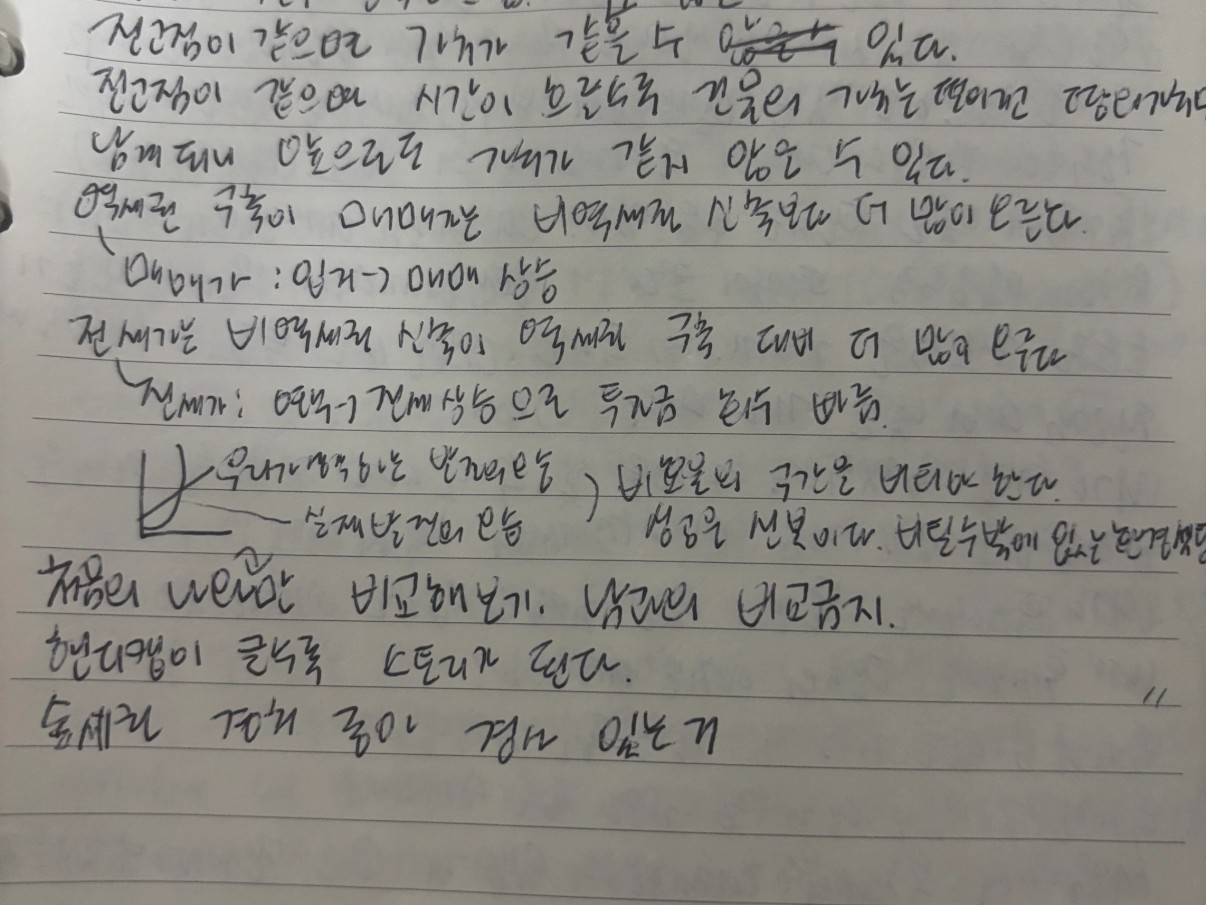 전고점이 같으면 가치가 같을 수 있다.
전고점이 같으며 시간이 흐를수록 건물의 가치는 떨어지고 땅의가치만
남게 되니 앞으로도 가치가 같지 않은 수 있다.
역세권 구축이 매매가는 비역세권 신축보다 더 많이 오른다.
매매가 : 입지-> 매매 상승
전세가는 비역세권 신축이 역세권 구축 대비 더 많이 오른다
전세가 : 연식-> 전세상승으로 투자금 회수 빠름.
우리가생각하는 발전의모습
비효율의 구간을 버텨야 한다.
실제발전의 모습
성공은 선불이다. 버틸수밖에 없는 환경
처음의 나와만 비교해보기. 남과의 비교금지.
핸디캡이 클수록 스토리가 된다.
숲세권 경치 좋아 경사 있는거